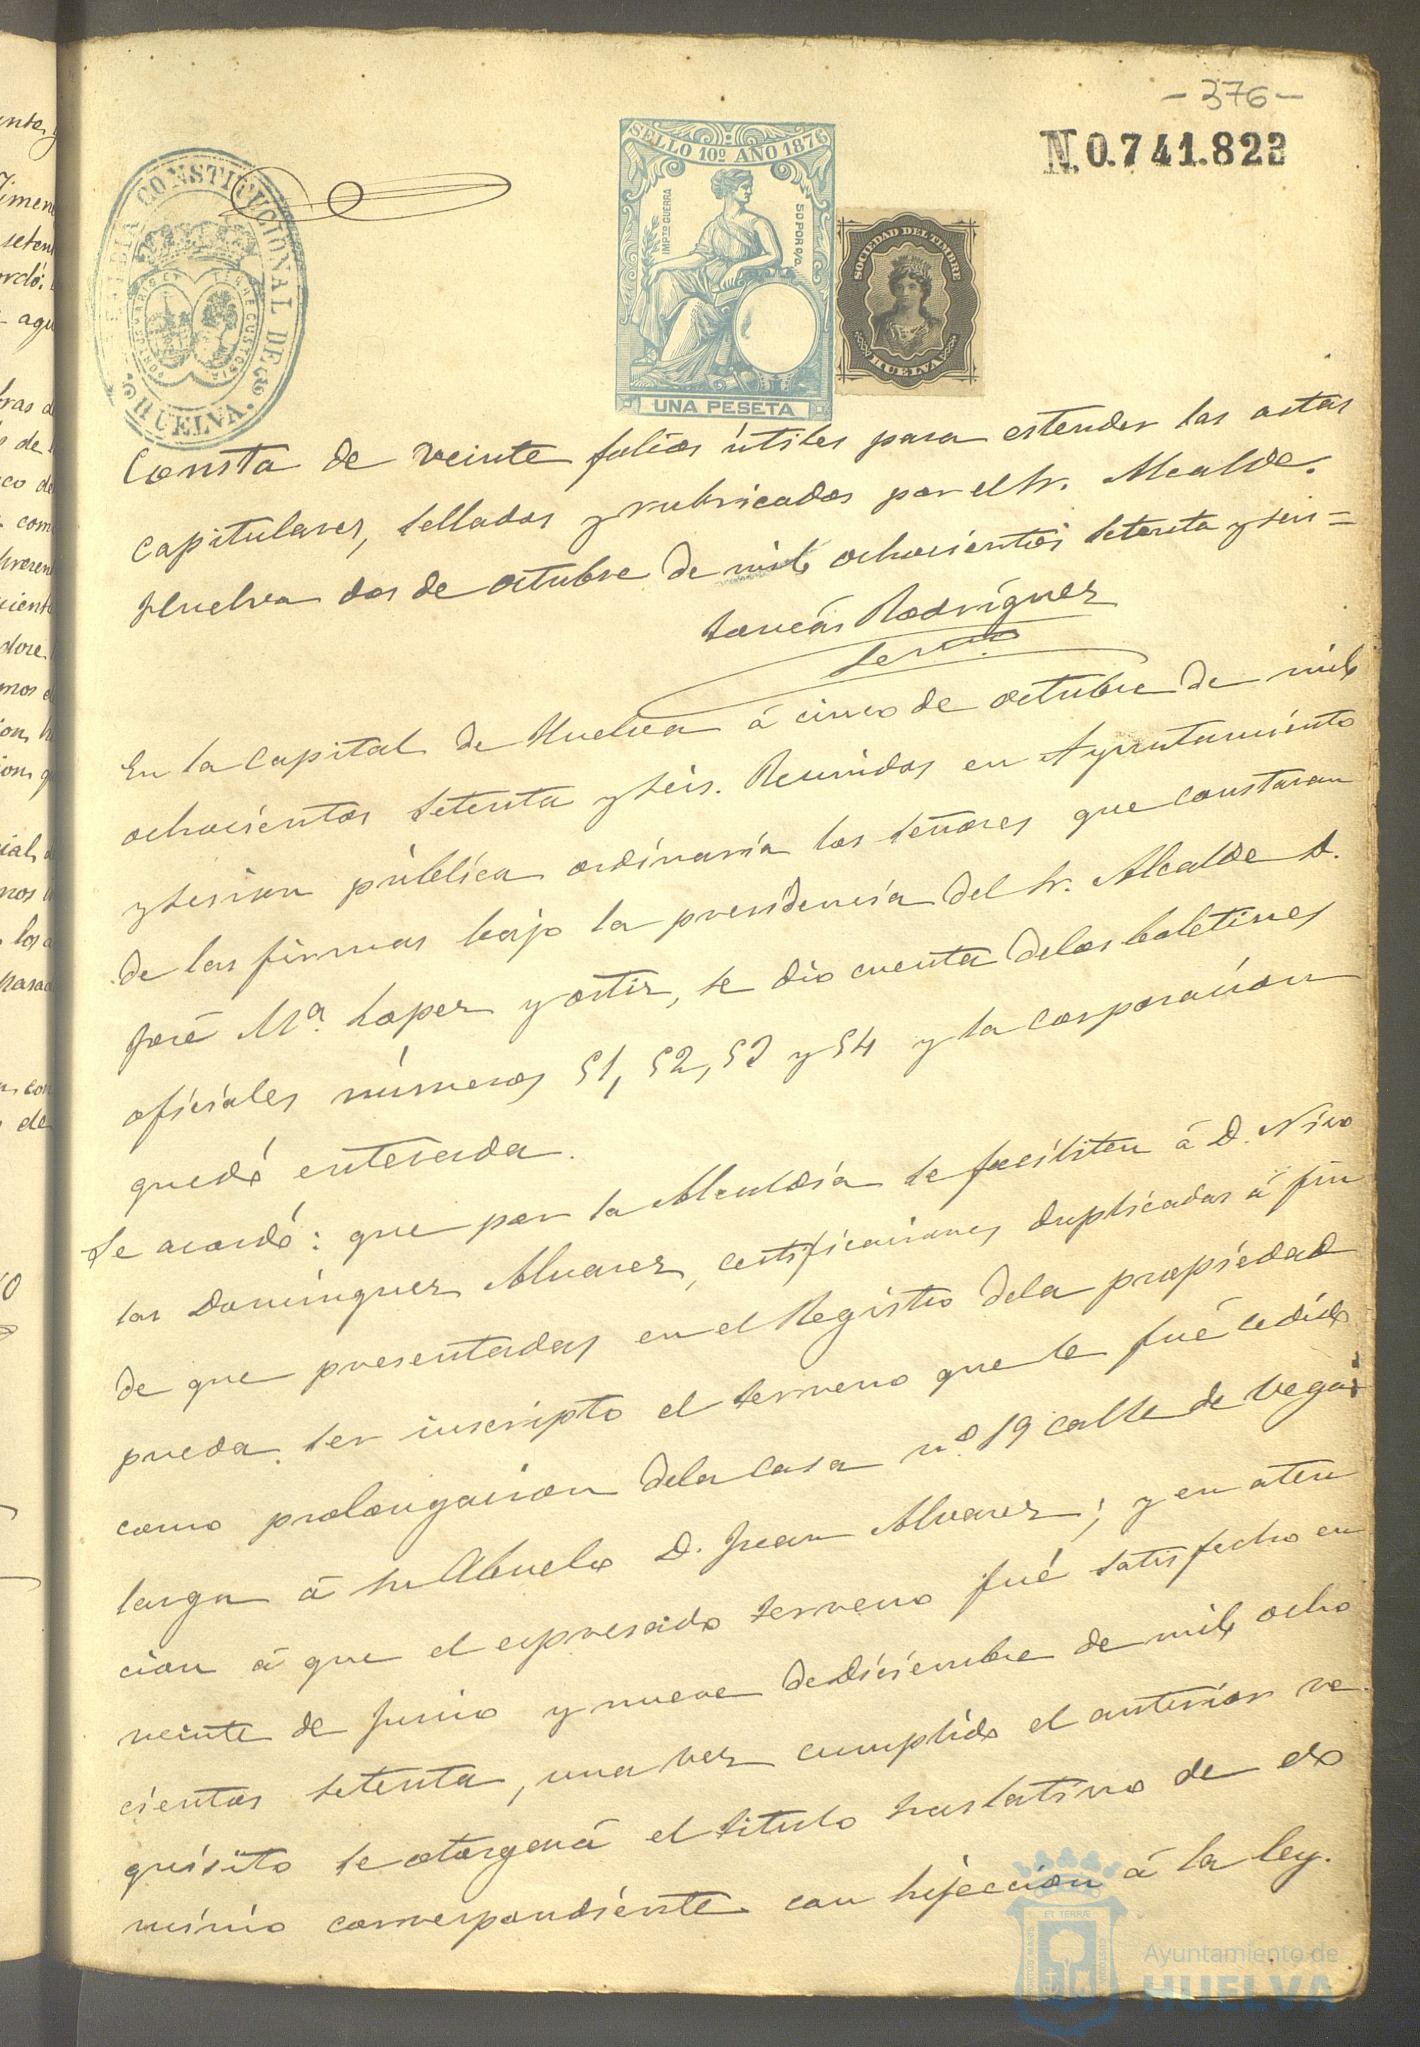 - 376 -
N. 0.741.823
ALCALDIA CONSTITUCIONAL DE
HUELVA.
PORTUS MARIS ET TERRE CUSTODIA
SELLO 10º AÑO 1876
IMPTO GUERRA
50 POR 0/0
UNA PESETA
SOCIEDAD DEL TIMBRE
HUELVA
Consta de veinte folios útiles para estender las actas
capitulares, sellados y rubricados por el Sr. Alcalde.
Huelva dos de octubre de mil ochocientos setenta y seis =
Rodríguez
En la Capital de Huelva á cinco de octubre de mil
ochocientos setenta y seis. Reunidos en Ayuntamiento
y sesion pública ordinaria los señores que constaran
de las firmas bajo la presidencia del Sr. Alcalde D.
José Mª. Lopez y ortiz, se dio cuenta delos boletines
oficiales números 51, 52, 53 y 54 y la corporacion
quedó enterada.
Se acordó: que por la Alcaldía se faciliten á D. Nico
las Domínguez Alvarez, certificaciones duplicadas á fin
de que presentadas en el Registro dela propiedad
pueda ser inscripto el terreno que le fué cedido
como prolongacion dela casa nº. 19 calle de Vega
larga á su Abuelo D. Juan Alvarez; y en aten
cion á que el espresado terreno fué satisfecho en
veinte de Junio y nueve de Diciembre de mil ocho
cientos setenta, una vez cumplido el anterior re
quisito se otorgará el titulo traslativo de do
minio correspondiente con sujeccion á la ley.
Ayuntamiento de
HUELVA